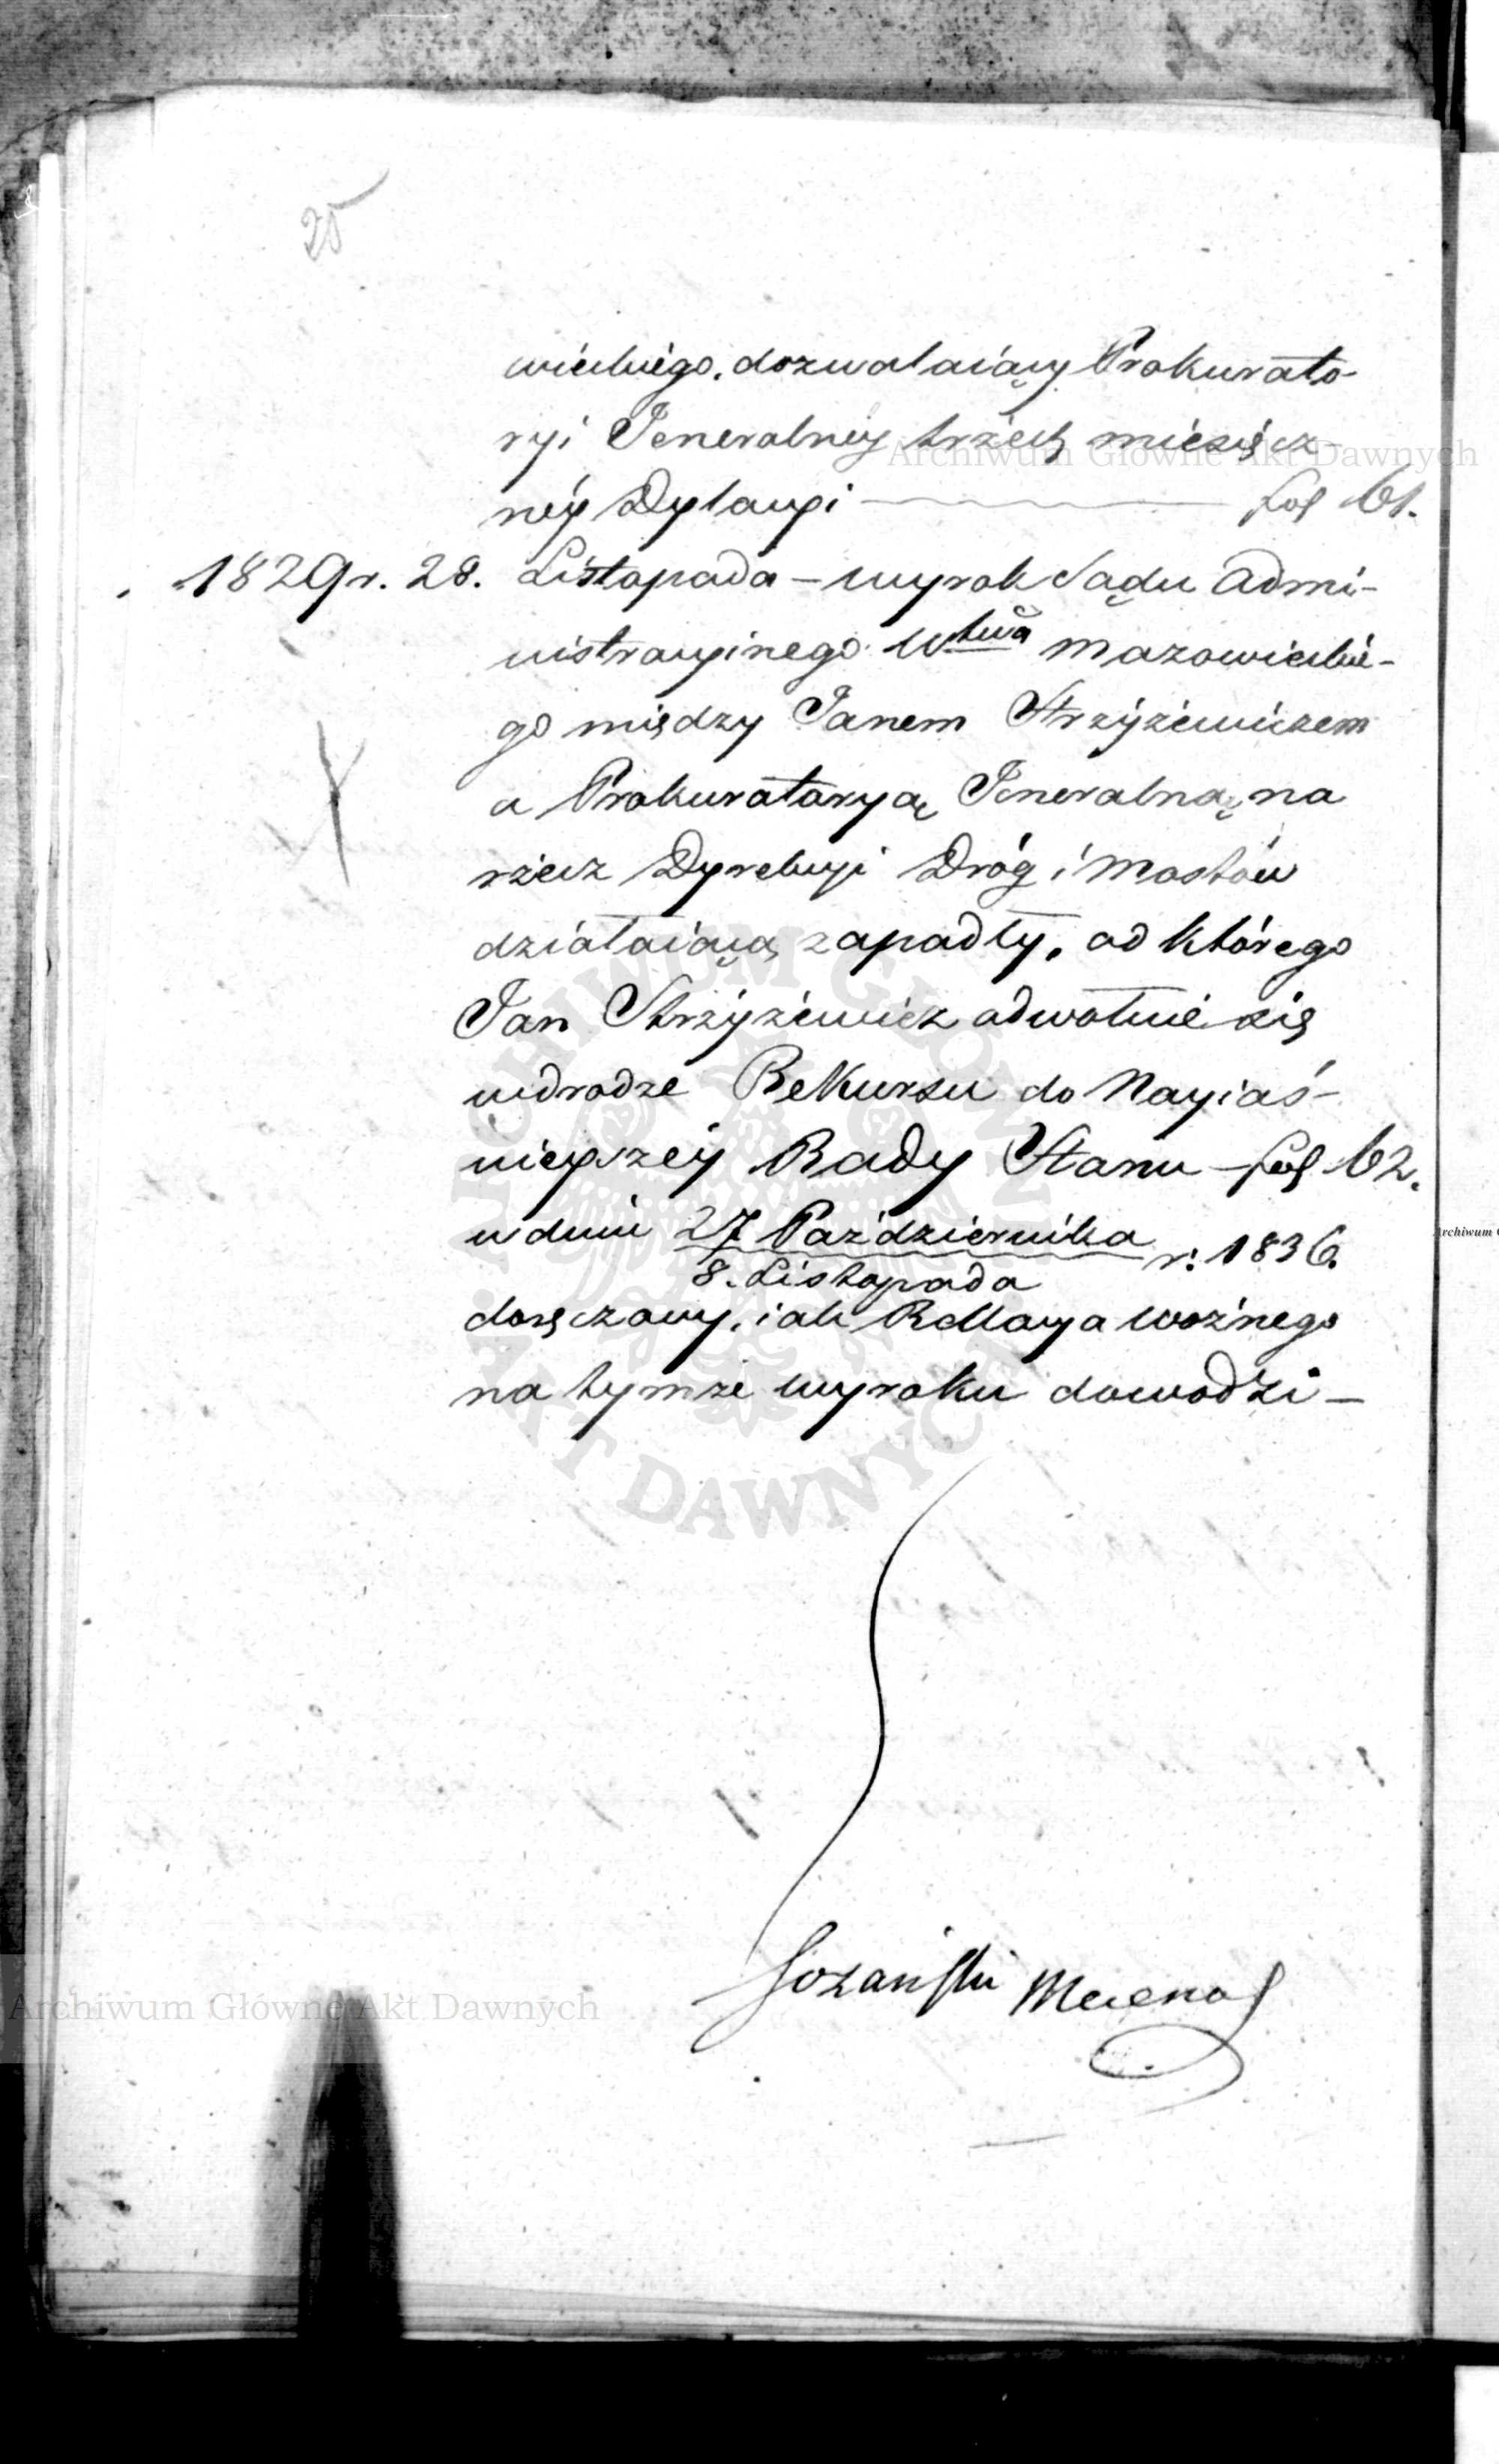 25
wieckiego, dozwalaiący Prokurato-
ryi Jeneralnéy trzech miesięcz-
néy Dylacyi — fol 61.
1829 r. 28. Listopada – wyrok Sądu Admi-
nistracyinego Wtwa Mazowieckie-
go między Janem Strzyżewiczem
a Prokuratoryą Jeneralną, na
rzecz Dyrekcyi Dróg i Mostów
działaiącą zapadły, od którego
Jan Strzyżewicz odwołuie się
w drodze Rekursu do Nayiaś-
nieyszey Rady Stanu – fol 62.
w dniu 27 Października r. 1836.
8. Listopada
doręczony, iak Rellacya Woźnego
na tymże wyroku dowodzi –
Mecenas
Archiwum Główne Akt Dawnych
Archiwum Główne Akt Dawnych
ARCHIWUM GŁÓWNE AKT DAWNYCH